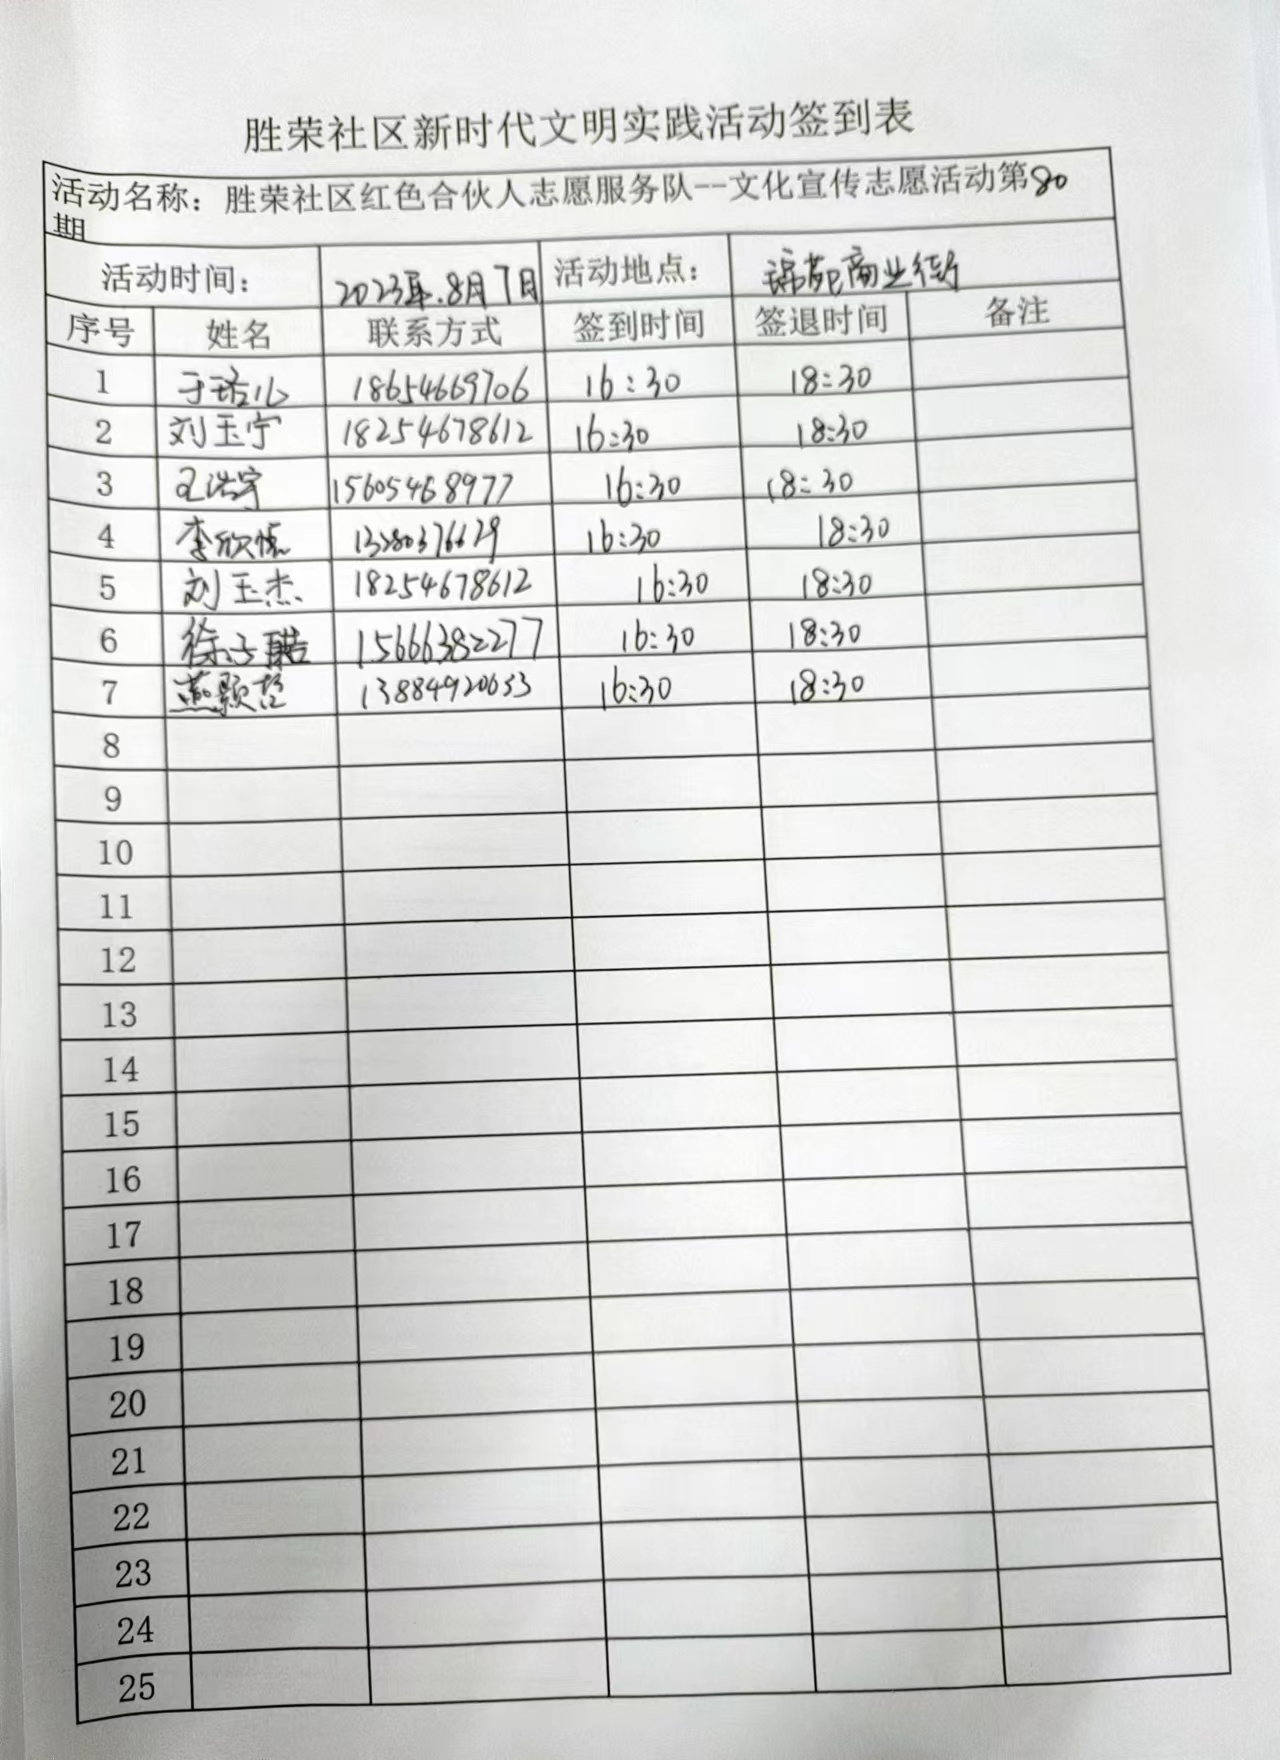 胜荣社区新时代文明实践活动签到表
活动名称：胜荣社区红色合伙人志愿服务队--文化宣传志愿活动第80
期
活动时间： 2023年.8月7日 活动地点： 锦苑商业街
序号 姓名 联系方式 签到时间 签退时间 备注
1 18654669706 16:30 18:30
2 刘玉宁 18254678612 16:30 18:30
3 王浩宇 15605468977 16:30 18:30
4 李欣 16:30 18:30
5 刘玉杰 18254678612 16:30 18:30
6 徐子 15666382277 16:30 18:30
7 燕颖哲 13884920653 16:30 18:30
8
9
10
11
12
13
14
15
16
17
18
19
20
21
22
23
24
25